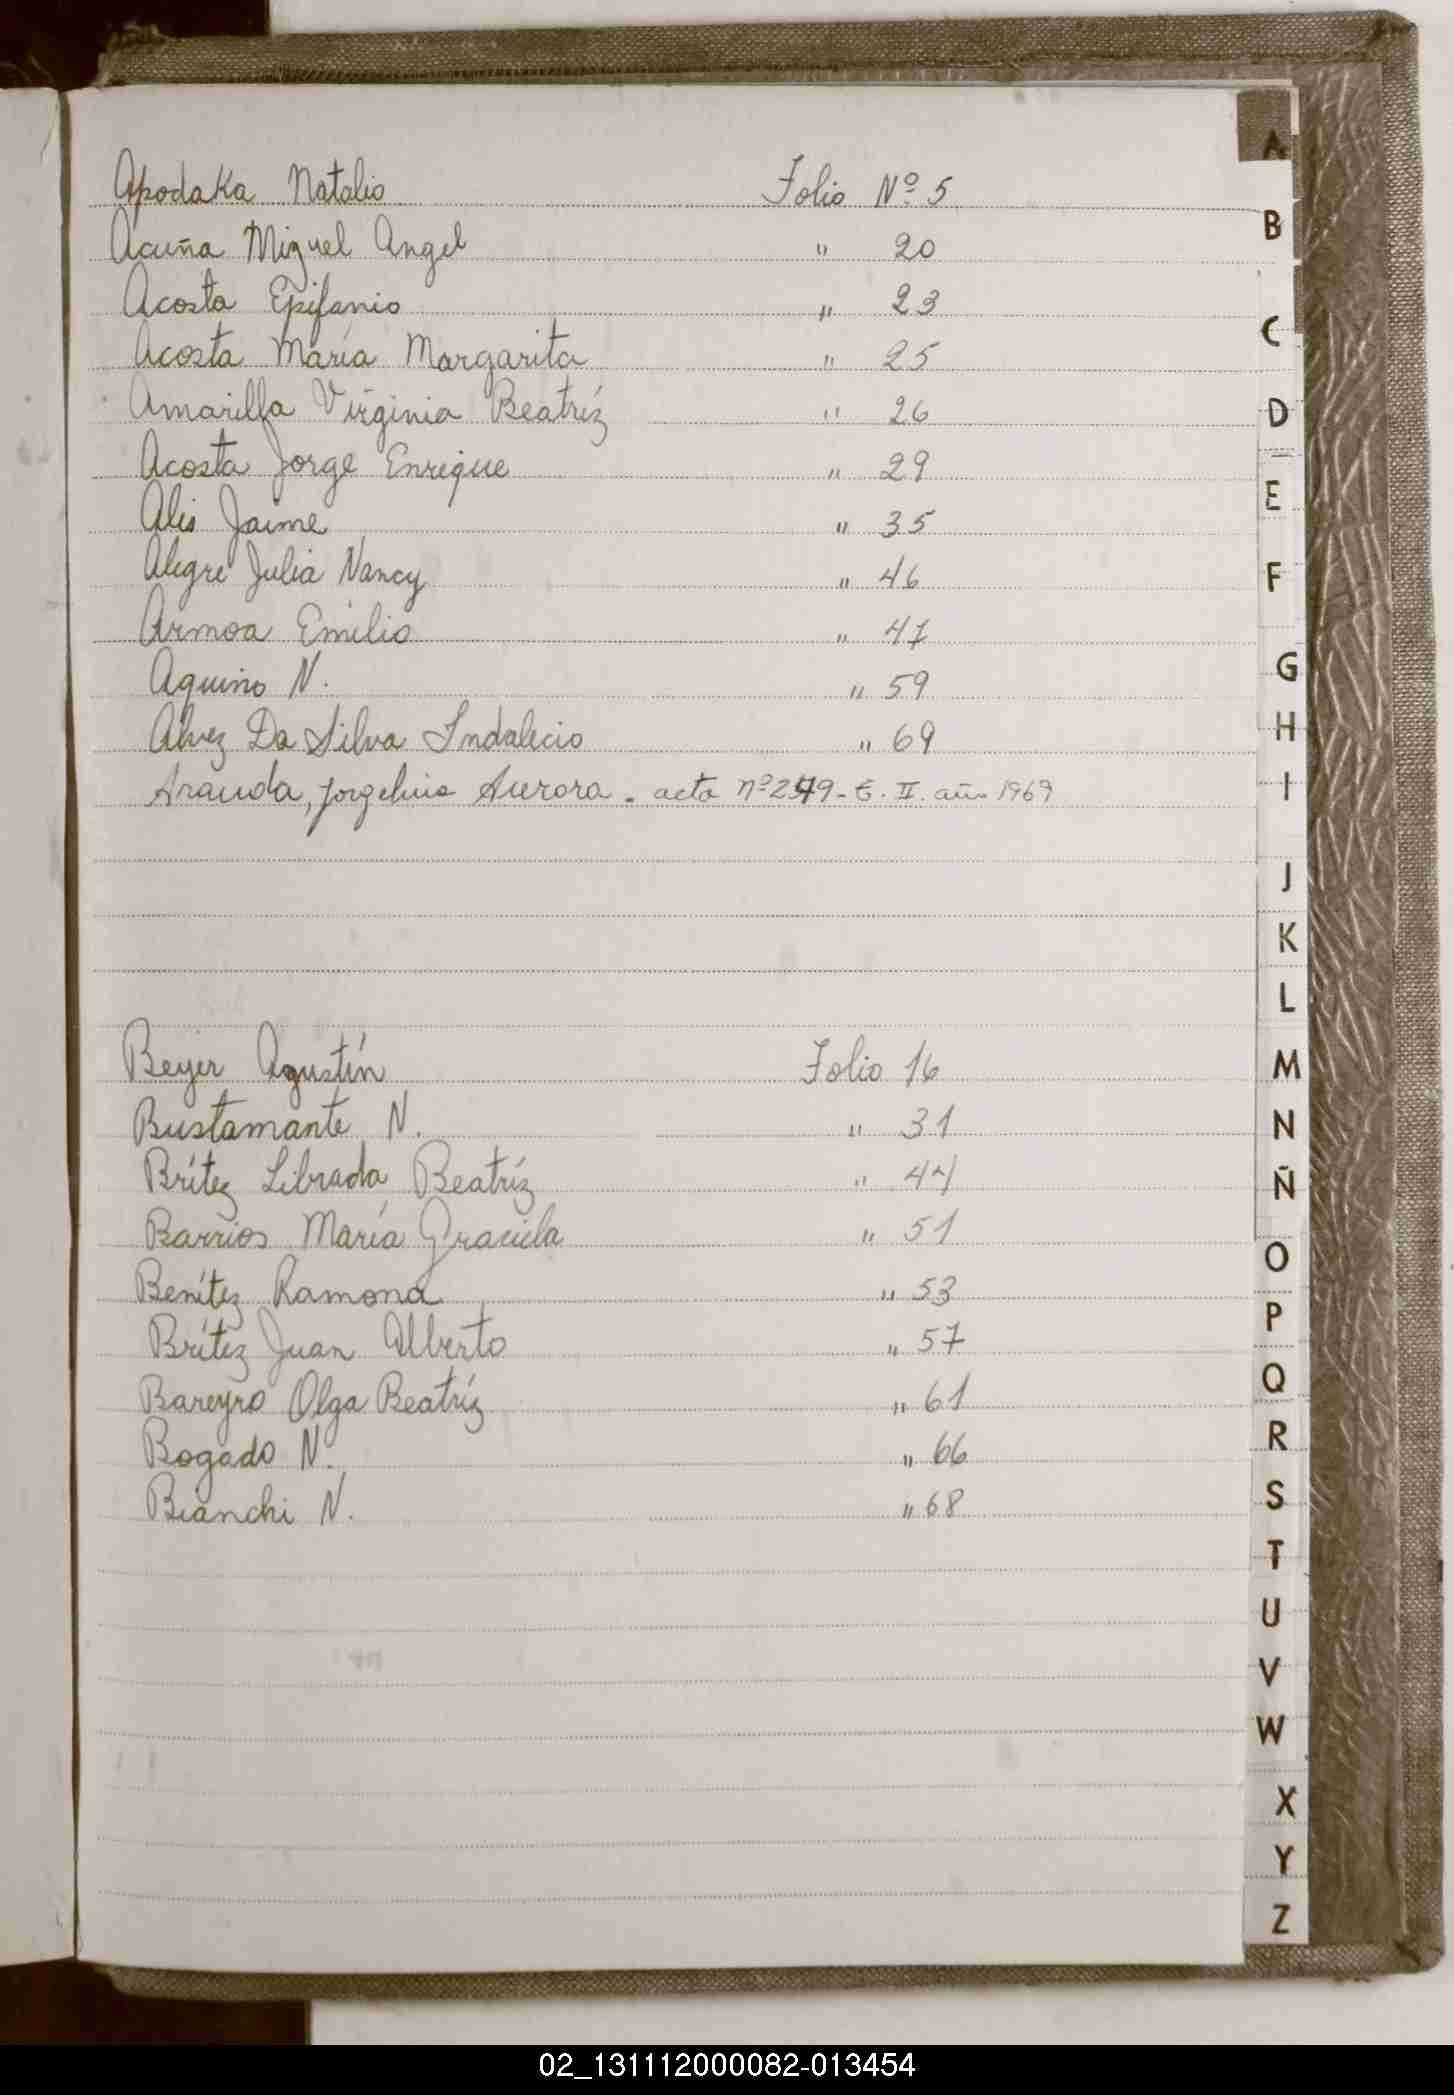 Apodaka Natalio Folio Nº 5
Acuña Miguel Angel " 20
Acosta Epifanio " 23
Acosta María Margarita " 25
Amarilla Virginia Beatríz " 26
Acosta Jorge Enrique " 29
Alis Jaime " 35
Alegre Julia Nancy " 46
Armoa Emilio " 47
Aquino N. " 59
Alvez Da Silva Indalecio " 69
Aranda, Jorgelina Aurora. acta nº 249 - T. II. año 1969
Beyer Agustín Folio 16
Bustamante N. " 31
Brítez Librada Beatríz " 44
Barrios María Graciela " 51
Benítez Ramona " 53
Brítez Juan Alberto " 57
Bareyro Olga Beatríz " 61
Bogado N. " 66
Bianchi N. " 68
A
B
C
D
E
F
G
H
I
J
K
L
M
N
Ñ
O
P
Q
R
S
T
U
V
W
X
Y
Z
02_131112000082-013454